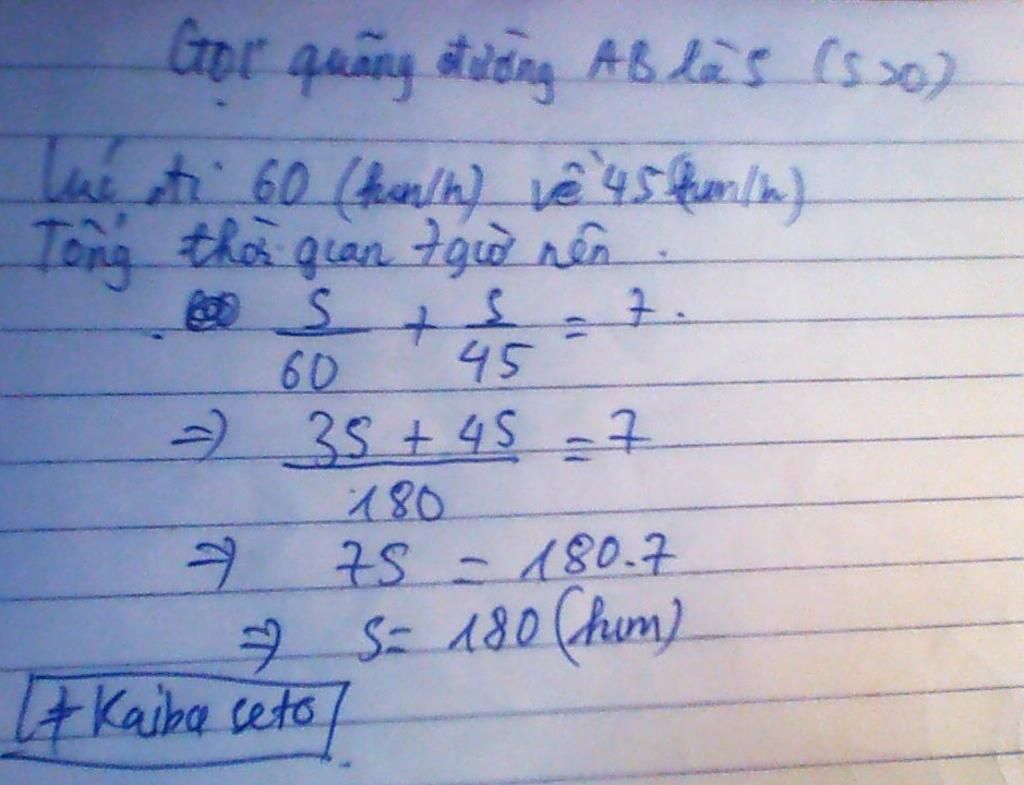 Gọi quãng đường AB là S (S>0)
Lúc đi 60 (km/h) về 45 (km/h)
Tổng thời gian 7 giờ nên.
S/60 + S/45 = 7.
=> (3S + 4S)/180 = 7
=> 7S = 180.7
=> S = 180 (km)
+ Kaiba ceto